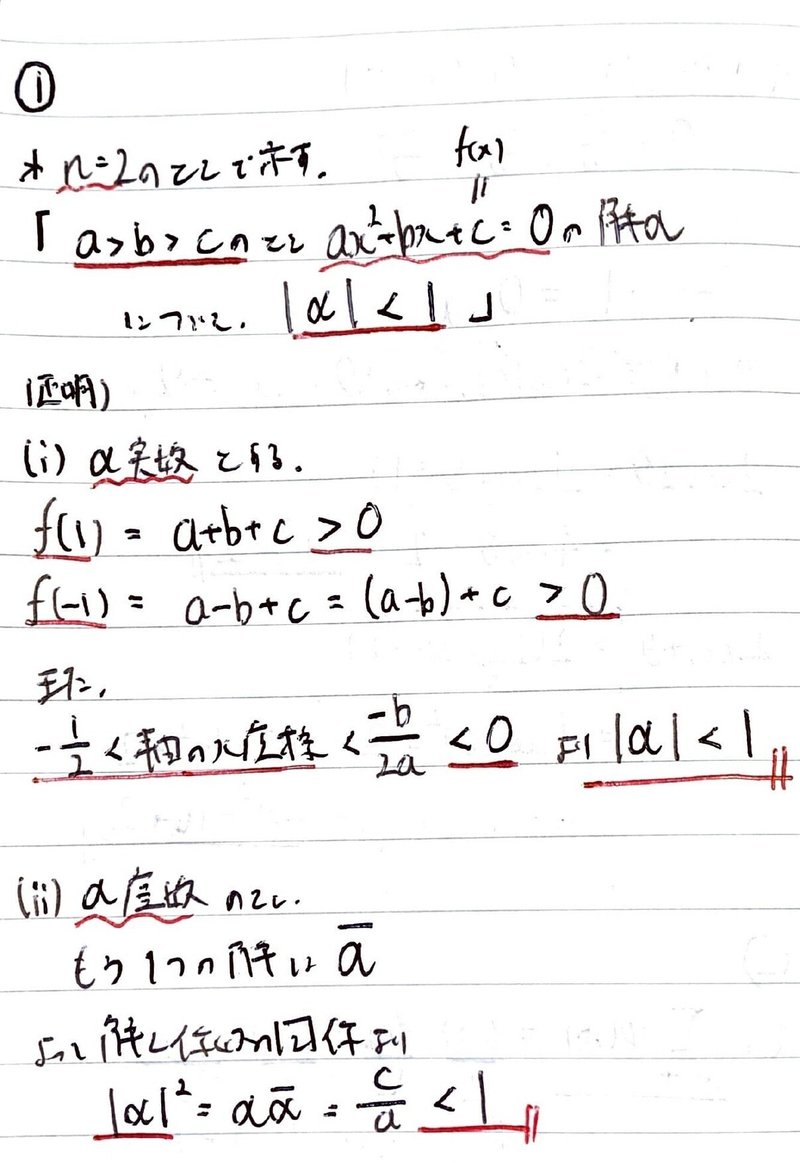 ①
* n=2のときで示す.
f(x)
=
「 a>b>cのとき ax²+bx+c=0の解α
について. |α|<1 」
(証明)
(i) α実数とする.
f(1) = a+b+c >0
f(-1) = a-b+c = (a-b)+c >0
また,
-1/2 < 軸のx座標 < -b/2a < 0 より |α|<1
(ii) α虚数のとき.
もう1つの解は ᾱ
よって解と係数の関係より
|α|² = αᾱ = c/a < 1